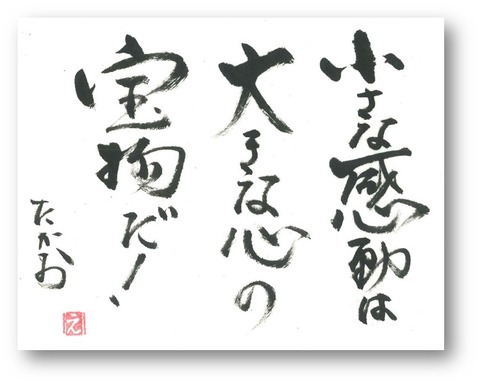 小さな感動は
大きな心の
宝物だ!
たかお
え